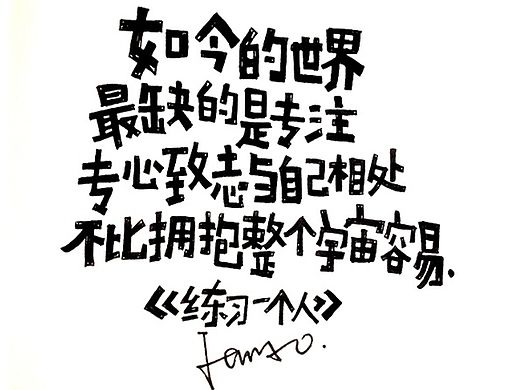 如今的世界
最缺的是专注
专心致志与自己相处
不比拥抱整个宇宙容易.
《练习一个人》